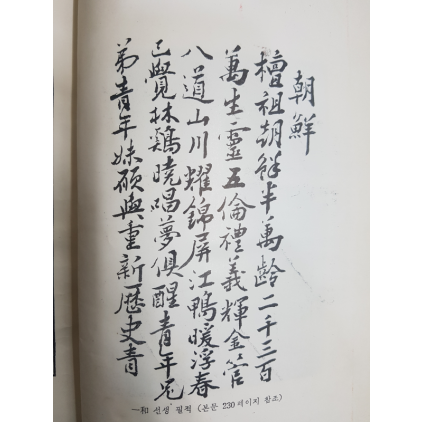 朝鮮
檀祖朝鮮半萬齡二千三百
萬生靈五倫禮義輝金管
八道山川耀錦屏江鴨暖浮春
已覺林鷄曉唱夢俱醒青年兄
弟青年妹願與重新歷史青
一和 선생 필적 (본문 230페이지 참조)